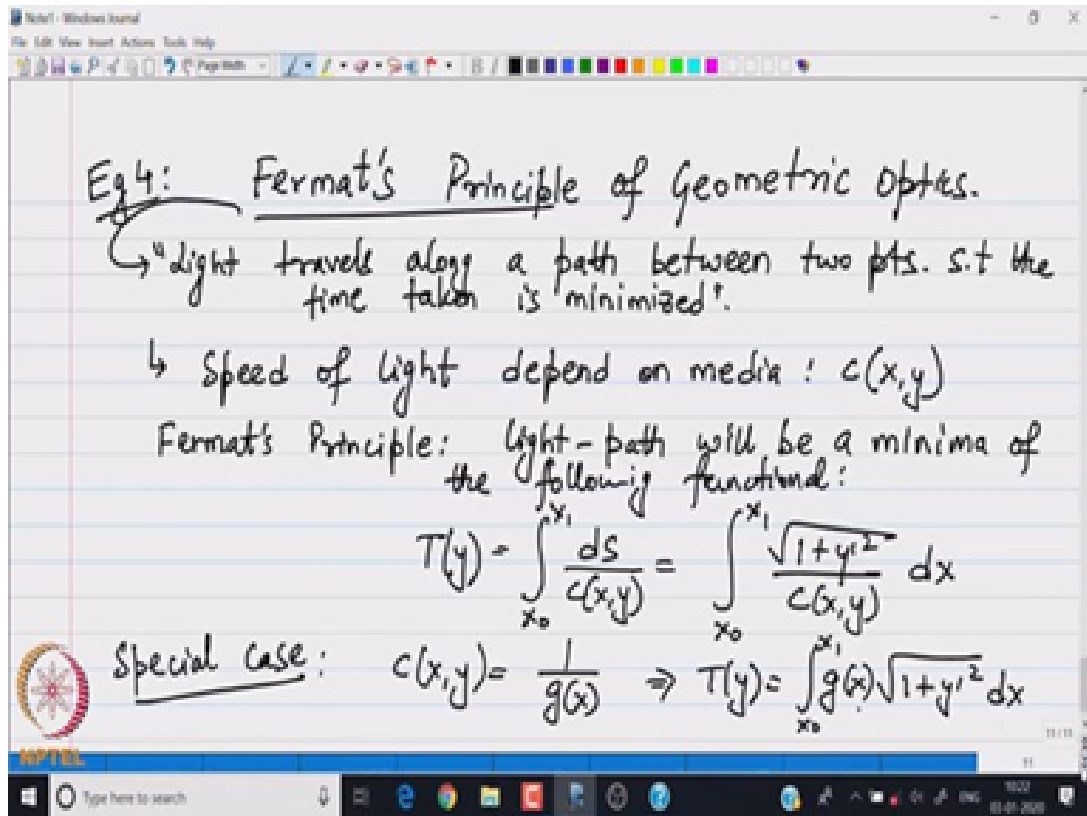 Note1 - Windows Journal
File Edit View Insert Actions Tools Help
Page Width
B I
Eg 4: Fermat's Principle of Geometric Optics.
"Light travels along a path between two pts. s.t the
time taken is "minimized".
↳ Speed of light depend on media : c(x,y)
Fermat's Principle: light-path will be a minima of
the followig functional:
T(y) = ∫_{x₀}^{x₁} ds / c(x,y) = ∫_{x₀}^{x₁} √(1+y'²) / c(x,y) dx
Special case : c(x,y) = 1 / g(x) ⇒ T(y) = ∫_{x₀}^{x₁} g(x) √(1+y'²) dx
11/11
NPTEL
11
Type here to search
ENG
10:22
03-01-2020